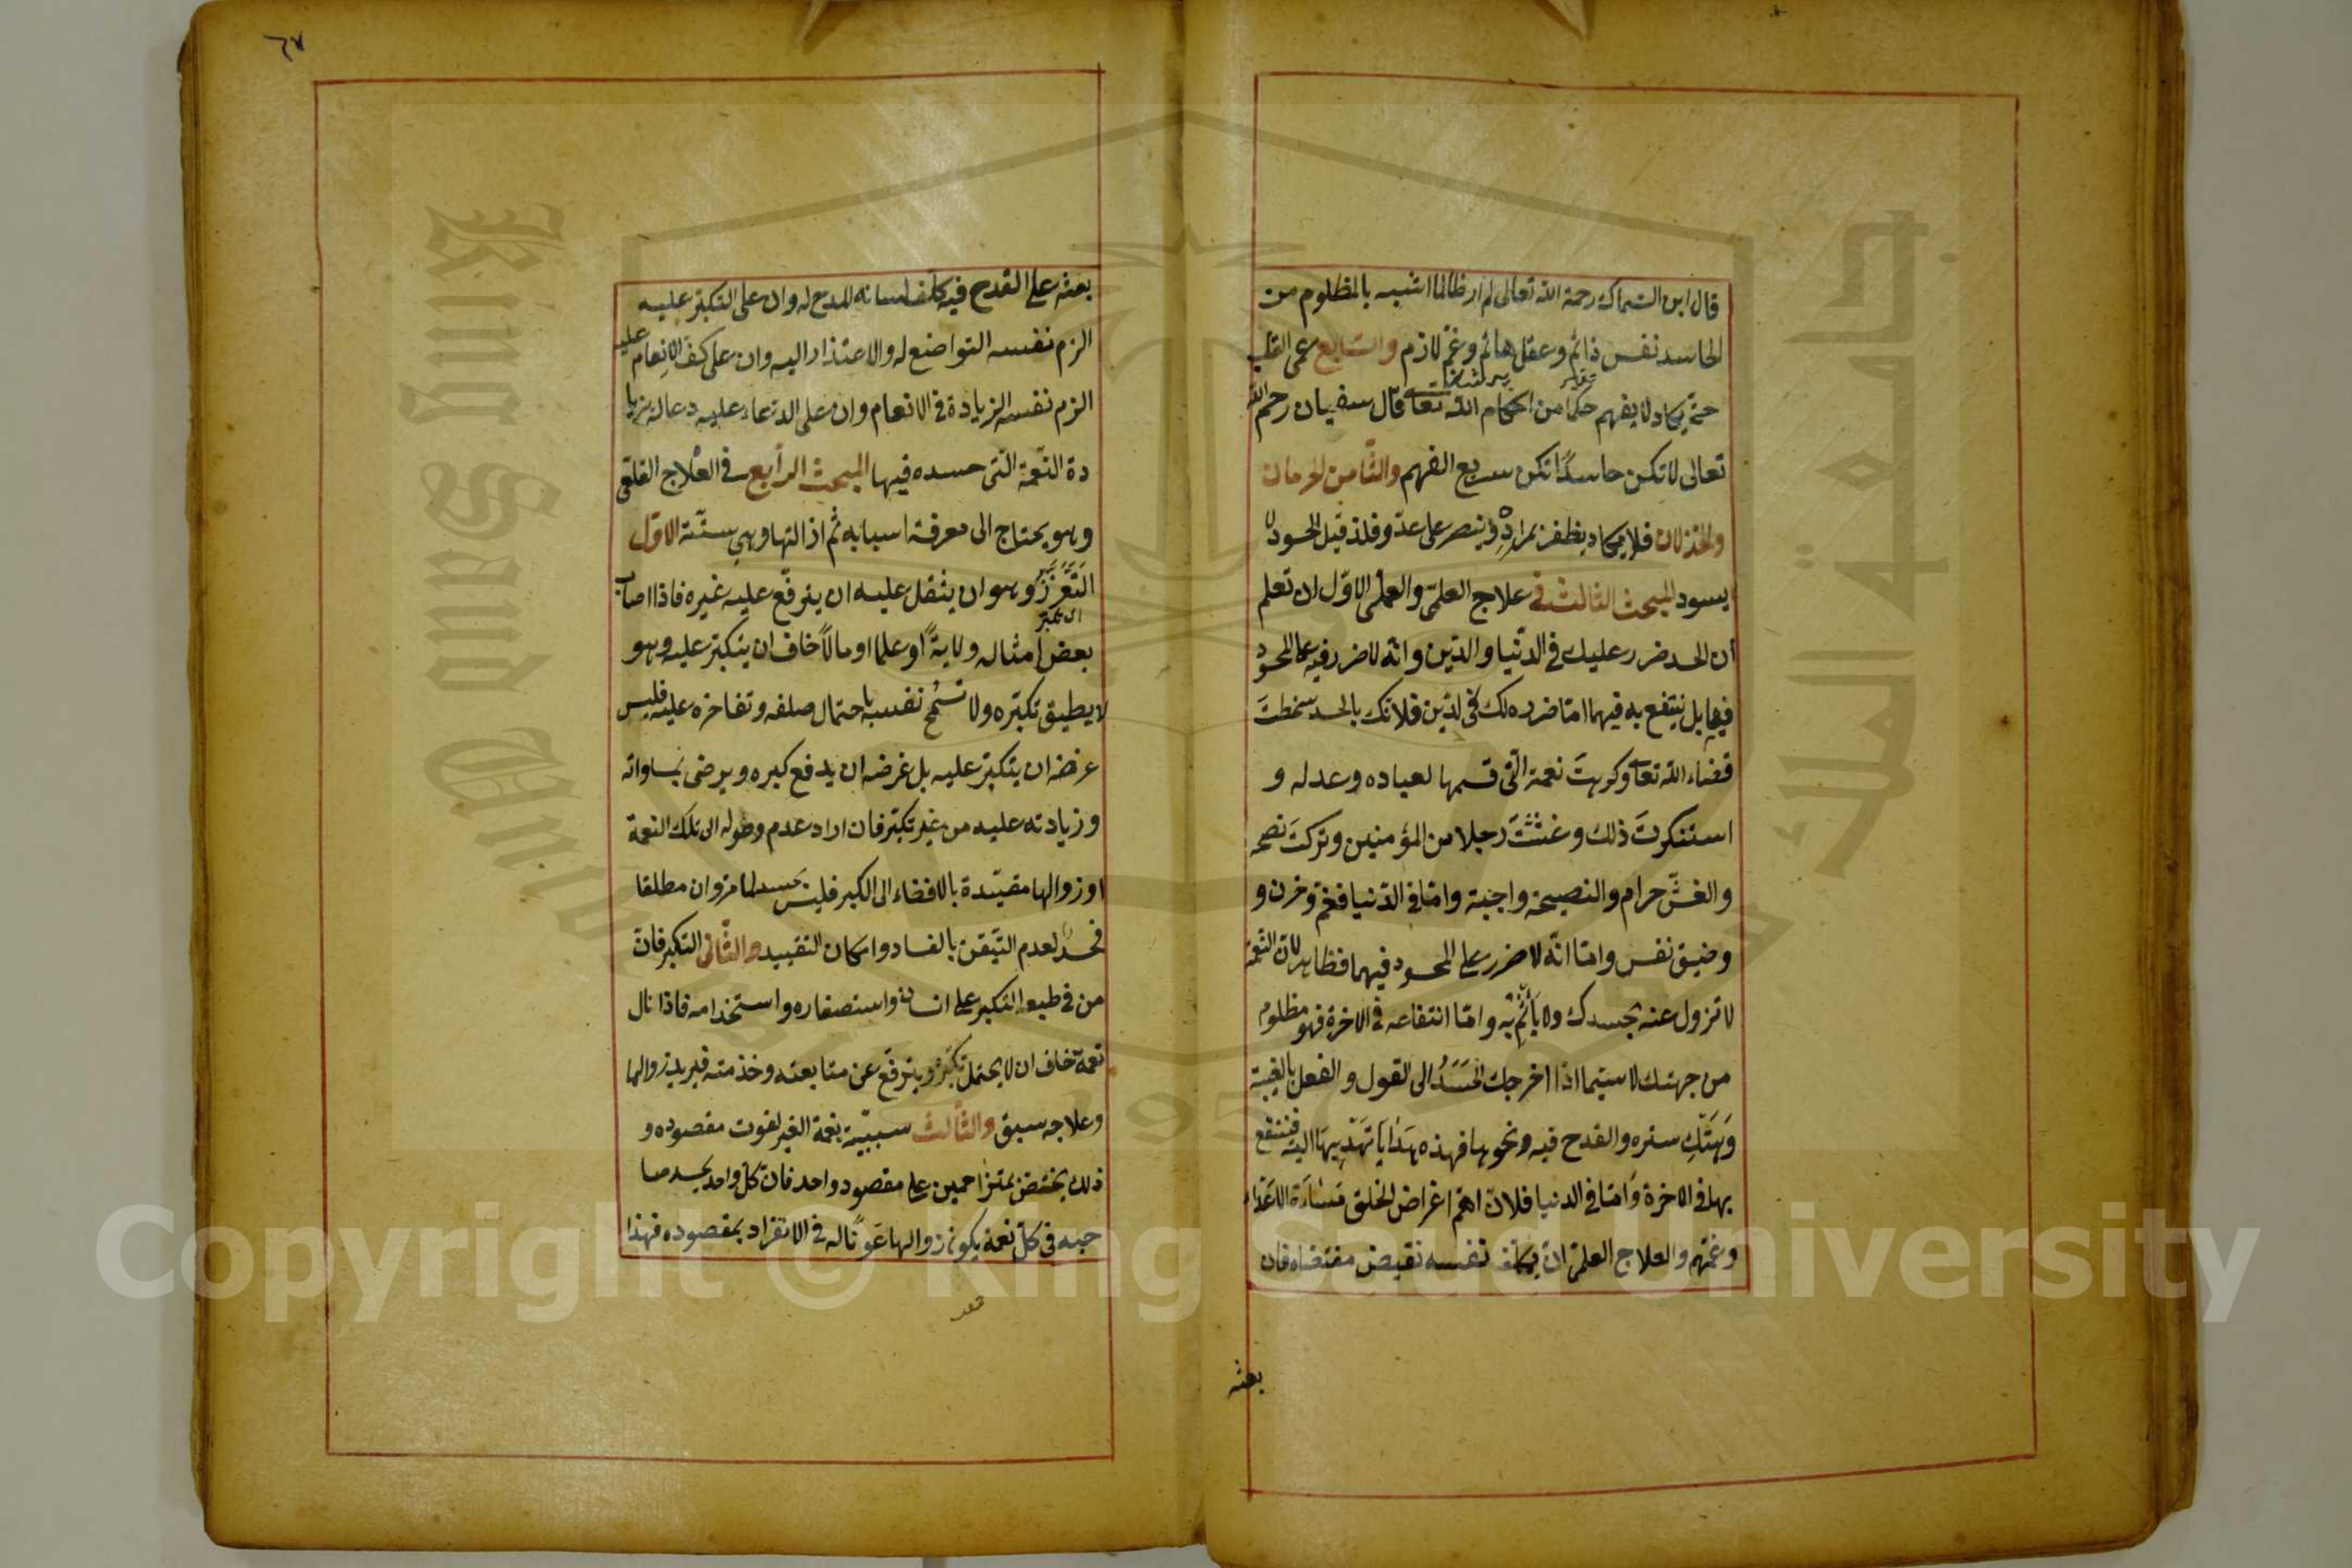 قال ابن السماك رحمة الله تعالى لم ار ظالما اشبه بالمظلوم من
الحاسد نفس دائم وعقل هائم وغم لازم والسابع عمى القلب
حتى يكاد لا يفهم حكما من احكام الله تعالى قال سفيان رحمه الله
تعالى لا تكن حاسدًا تكن سريع الفهم والثامن الحرمان
والخذلان فلا يكاد يظفر بمراده وينصر على عدو فلذ قيل الحسود لا
يسود المبحث الثالث في علاج العلمي والعملي الاول ان تعلم
أن الحسد ضرر عليك في الدنيا والدين وانه لا ضرر فيه على المحسود
فيها بل ينتفع به فيهما اما ضرره لك في الدين فلانك بالحسد سخطت
قضاء الله تعالى وكرهت نعمة التى قسمها لعباده وعدله و
استنكرت ذلك وغششت رجلا من المؤمنين وتركت نصحه
والغش حرام والنصيحة واجبة واما في الدنيا فغم وحزن و
وضيق نفس واما انه لا ضرر على المحسود فيهما فظاهر لان النعمة
لا تزول عنه بحسدك ولا يأثم به واما انتفاعه في الاخرة فهو مظلوم
من جهتك لا سيما اذا اخرجك الحسد الى القول والفعل بالغيبة
وهتك ستره والقدح فيه ونحوها فهذه هدايا تهديها اليه فينتفع
بها في الاخرة واما في الدنيا فلان اهم اغراض الخلق مساءة الاعداء
وغمهم والعلاج العملى ان يكلف نفسه نقيض مقتضاه فان
بعثه
٦٧
بعثه على القدح فيه كلف لسانه المدح له وان على التكبر عليه
الزم نفسه التواضع له والاعتذار اليه وان على كف الانعام عليه
الزم نفسه الزيادة في الانعام وان على الدعاء عليه دعا له بزيا
دة النعمة التى حسده فيها المبحث الرابع في العلاج القلعى
وهو يحتاج الى معرفة اسبابه ثم ازالتها وهي ستة الاول
التعزز وهو ان يثقل عليه ان يترفع عليه غيره فاذا اصاب
بعض امثاله ولاية او علما او مالاً خاف ان يتكبر عليه وهو
لا يطيق تكبره ولا تسمح نفسه باحتمال صلفه وتفاخره عليه فليس
غرضه ان يتكبر عليه بل غرضه ان يدفع كبره ويرضى بمساواته
وزيادته عليه من غير تكبر فان اراد عدم وصوله الى تلك النعمة
او زوالها مقيدة بالافضاء الى الكبر فليس بحسد لما مر وان مطلقا
فحسد لعدم التيقن بالفساد وامكان التقييد والثانى التكبر فان
من في طبعه التكبر على انسان واستصغاره واستخدامه فاذا نال
نعمة خاف ان لا يحتمل تكبره ويترفع عن متابعته وخدمته فيريد زوالها
وعلاجه سبق والثالث سببية نعمة الغير لفوت مقصوده و
ذلك يختص بمتزاحمين على مقصود واحد فان كل واحد يحسد صا
حبه في كل نعمة يكون زوالها عونًا له في الانفراد بمقصوده فهذا
King Saud University
جامعة الملك سعود
1957
Copyright © King Saud University